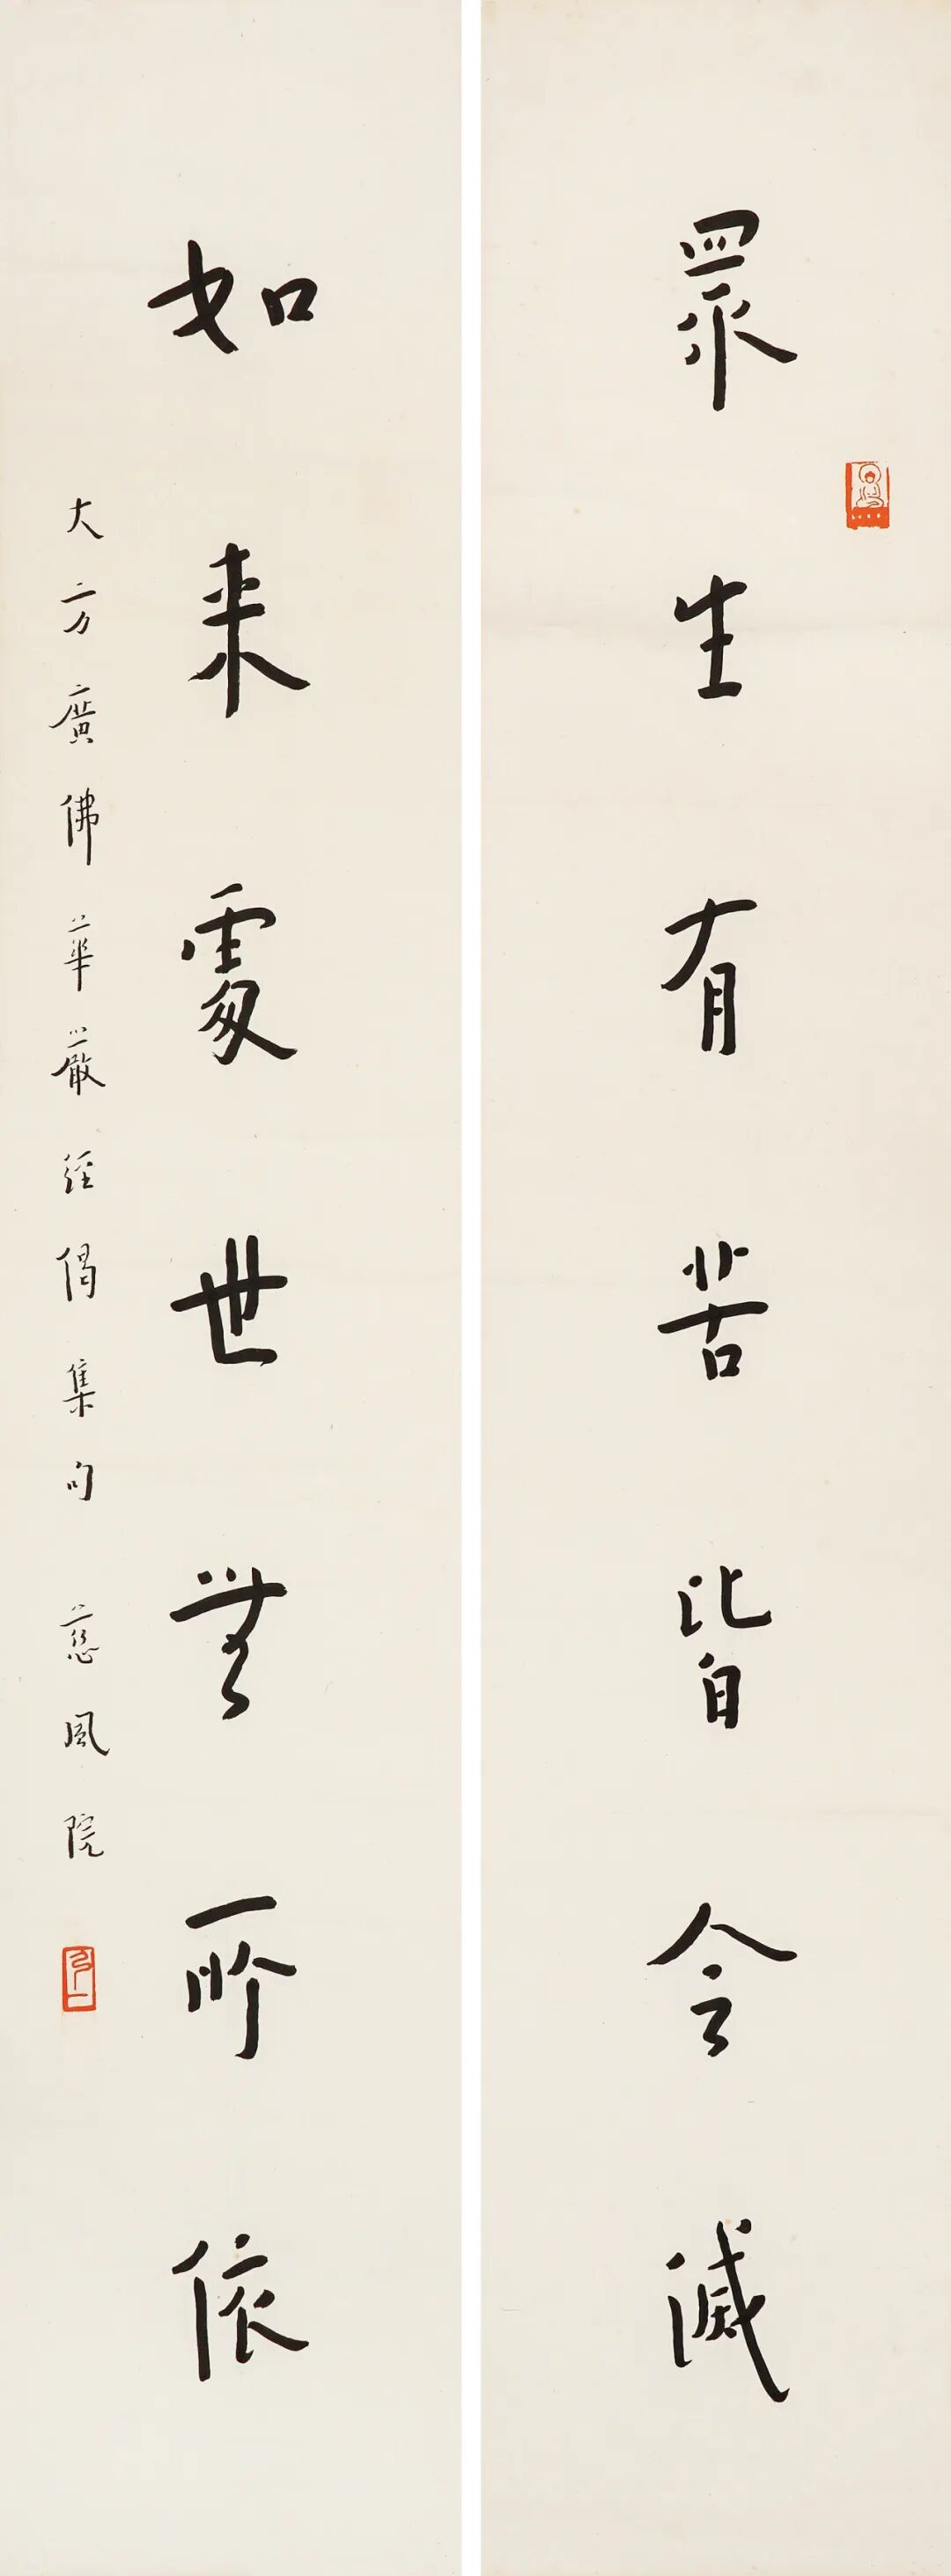 眾生有苦皆令滅
如来處世無所依
大方廣佛華嚴經偈集句 慈風院
弘一